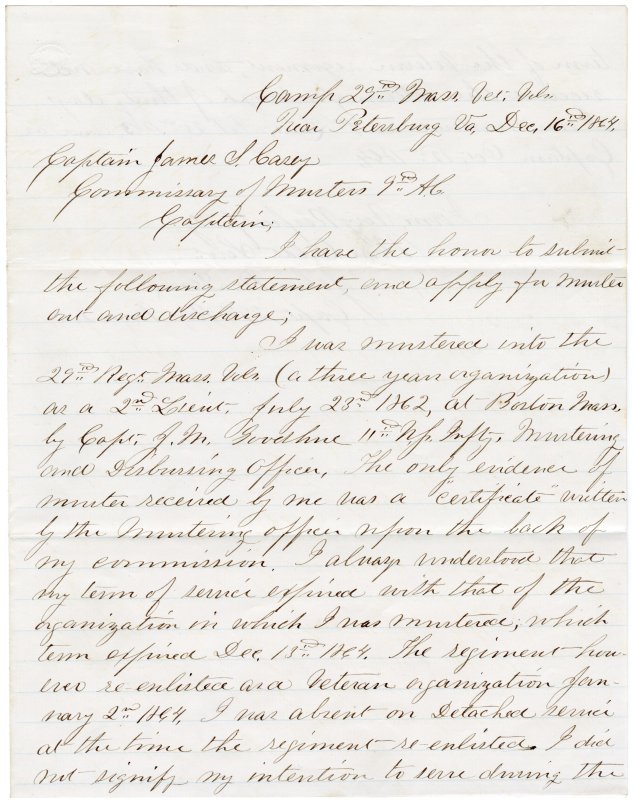 Camp 29th Mass. Vet. Vols.
Near Petersburg Va, Dec, 16th 1864.
Captain James S. Casey
Commissary of Musters 9th A.C.
Captain;
I have the honor to submit
the following statement, and apply for muster
out and discharge;
I was mustered into the
29th Regt. Mass. Vols. (a three years organization)
as a 2nd Lieut. July 23rd 1862, at Boston Mass.
by Capt. J. M. Goodhue 11th U.S. Infty. Mustering
and Disbursing Officer. The only evidence of
muster received by me was a "certificate" written
by the Mustering officer upon the back of
my commission. I always understood that
my term of service expired with that of the
organization in which I was mustered; which
term expired Dec. 13th 1864. The regiment how-
ever re-enlisted as a Veteran organization Jan-
uary 2nd 1864. I was absent on Detached service
at the time the regiment re-enlisted. I did
not signify my intention to serve during the